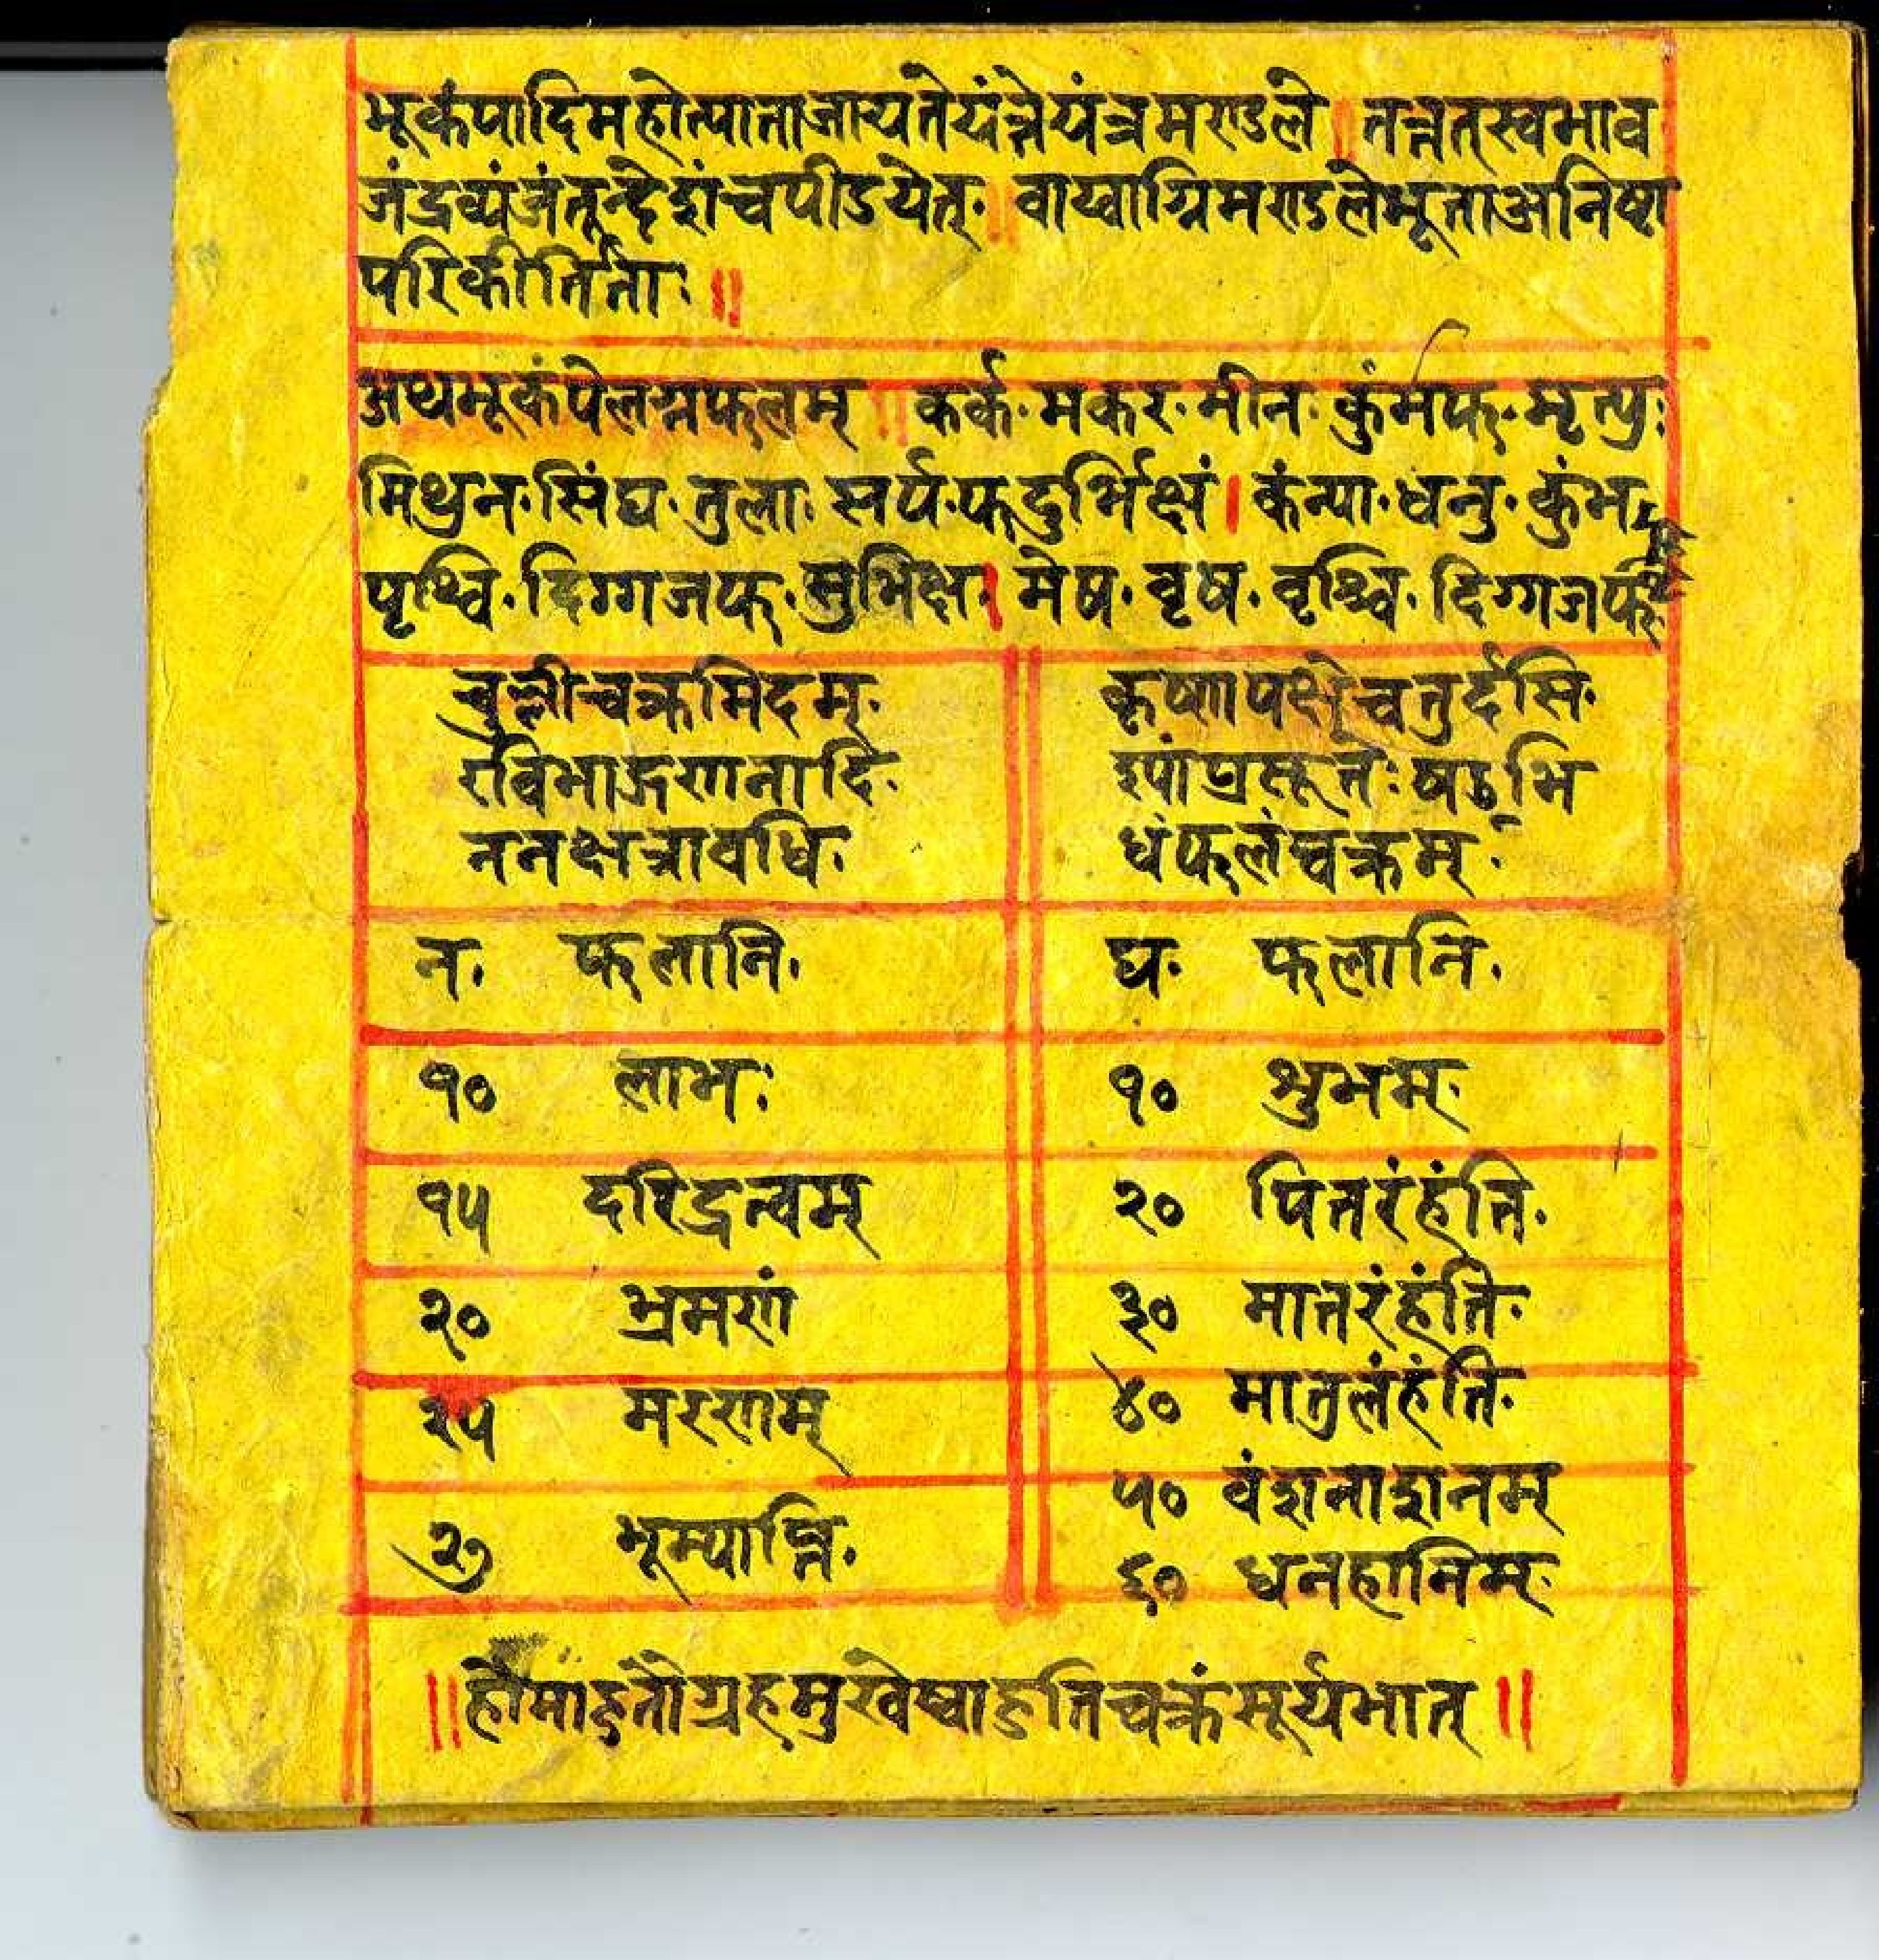 भूकंपादिमहोत्पाताजायतेयंत्रेयंत्रमण्डले॥ तत्रतत्स्वभाव
जंद्रव्यंजंतून्देशंचपीडयेत्॥ वाय्वाग्निमण्डलेभूताअनिष्टा
परिकीर्तिताः॥
अथभूकंपेलग्नफलम्॥ कर्क· मकर· मीन· कुंभफ· मृत्यु:
मिथुन· सिंघ· तुला· सर्प· फदुर्भिक्षं। कंन्या· धनु· कुंभ
पृथ्वि· दिग्गजफ· सुभिक्ष। मेष· वृष· वृश्चि· दिग्गजफ·
चुल्लीचक्रमिदम्·
रविभाद्गणनादि·
ननक्षत्रावधि·
कृष्णपक्षेचतुर्दसि·
ऽपांप्रसूतेः षड्भि
धंफलंचक्रम्·
न· फलानि·
घ· फलानि·
१० लाभः
१० शुभम्·
१५ दरिद्रत्वम्
२० पितरंहंति·
२० भ्रमणं
३० मातरंहंति·
२५ मरणम्
४० मातुलंहंति·
५० वंशनाशनम्
२७ भूम्याप्ति·
६० धनहानिम्·
॥होमाहुतौग्रहमुखेष्वाहुतिचक्रंसूर्यभात्॥